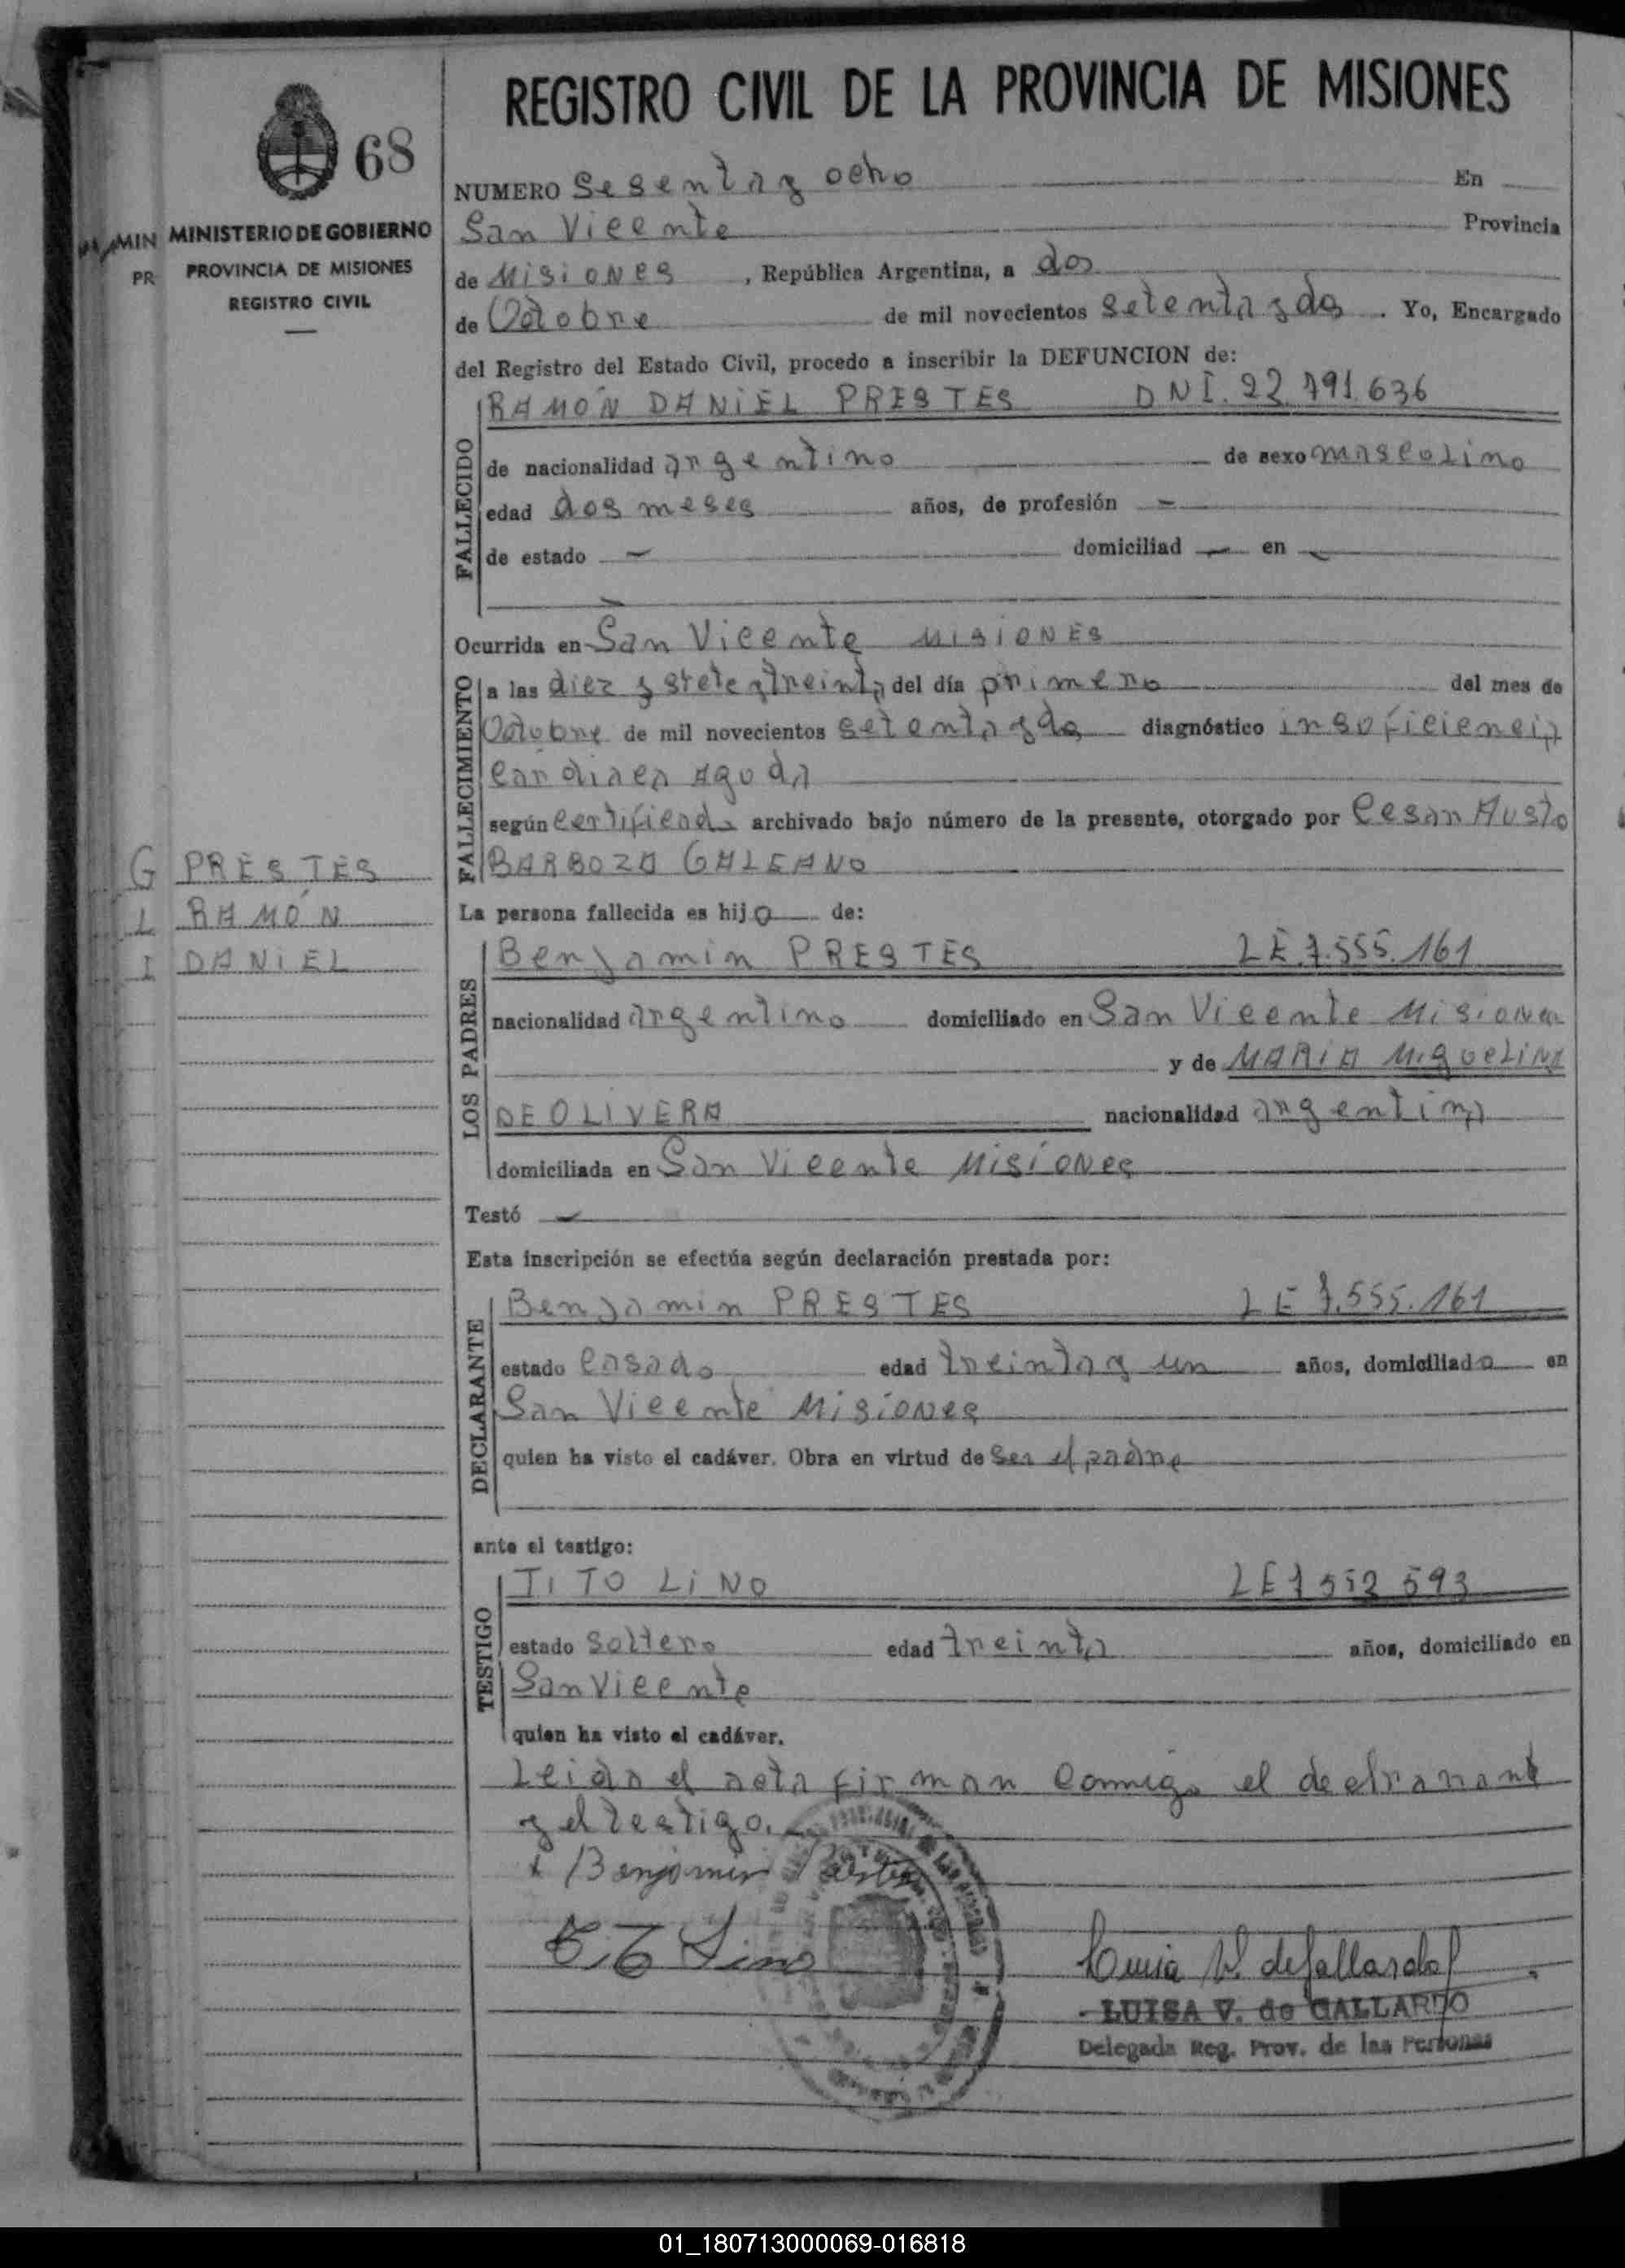 REGISTRO CIVIL DE LA PROVINCIA DE MISIONES
68
MINISTERIO DE GOBIERNO
PROVINCIA DE MISIONES
REGISTRO CIVIL
MIN
PR
NUMERO Sesenta y ocho En
San Vicente Provincia
de Misiones, República Argentina, a dos
de Octobre de mil novecientos setenta y dos. Yo, Encargado
del Registro del Estado Civil, procedo a inscribir la DEFUNCION de:
RAMÓN DANIEL PRESTES DNI. 22.791.636
FALLECIDO
de nacionalidad argentino de sexo mascolino
edad dos meses años, de profesión -
de estado - domiciliad - en -
Ocurrida en San Vicente MISIONES
FALLECIMIENTO
a las diez y siete y treinta del día primero del mes de
Octobre de mil novecientos setenta y dos diagnóstico insoficiencia
cardiaca aguda
según certificado archivado bajo número de la presente, otorgado por Cesar Austo
BARBOZA GALEANO
G PRESTES
L RAMÓN
I DANIEL
La persona fallecida es hijo de:
LOS PADRES
Benjamin PRESTES LE.7.555.161
nacionalidad argentino domiciliado en San Vicente Misiones
y de MARIA MiguELINA
DE OLIVERA nacionalidad argentina
domiciliada en San Vicente Misiones
Testó -
Esta inscripción se efectúa según declaración prestada por:
DECLARANTE
Benjamin PRESTES LE 7.555.161
estado casado edad treinta y un años, domiciliado en
San Vicente Misiones
quien ha visto el cadáver. Obra en virtud de ser el padre
ante el testigo:
TESTIGO
TITO LiNO LE 7 552 593
estado soltero edad treinta años, domiciliado en
San Vicente
quien ha visto el cadáver.
Leida el acta firman conmigo el declarante
y el testigo.
Benjamin Prestes
Lino
Luisa V. de Gallardo
LUISA V. de GALLARDO
Delegada Reg. Prov. de las Personas
01_180713000069-016818